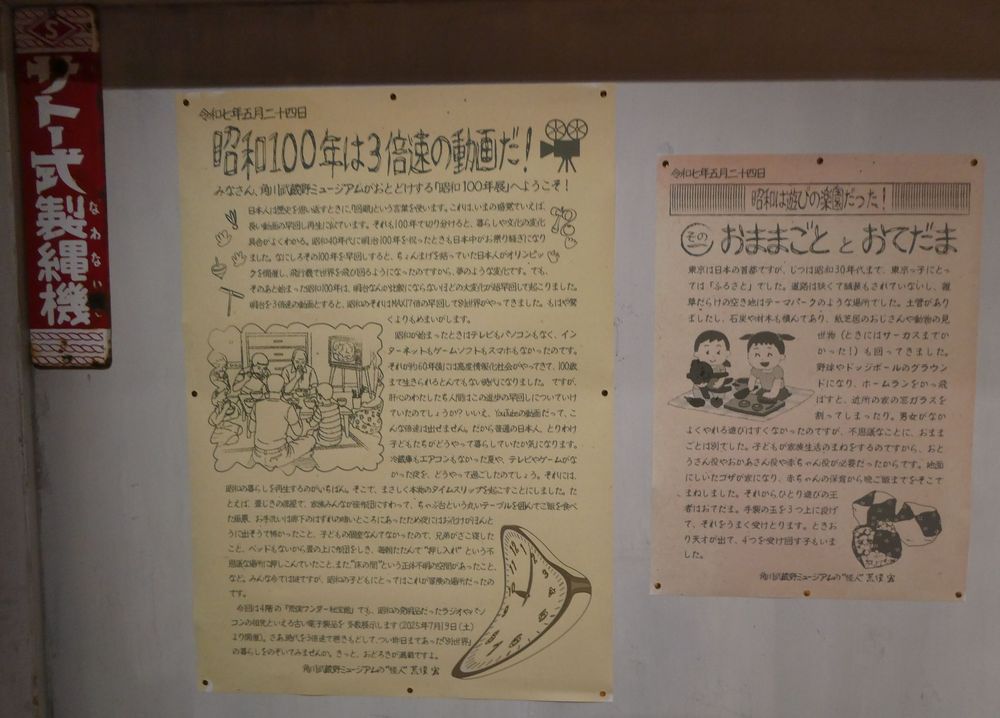 S
サトー式製縄機
なわない
令和七年五月二十四日
昭和100年は3倍速の動画だ！
みなさん、角川武蔵野ミュージアムがおとどけする「昭和100年展」へようこそ！
日本人は歴史を思い返すときに「回顧」という言葉を使います。これは、いまの感覚でいえば、
長い動画の早回し再生に似ています。それも100年で切り分けると、暮らしや文化の変化
具合がよくわかる。昭和40年代に明治100年を祝ったときも日本中がお祭り騒ぎになり
ました。なにしろその100年を早回しすると、ちょんまげを結っていた日本人がオリンピッ
クを開催し、飛行機で世界を飛び回るようになったのですから、夢のような変化です。でも、
そのあと始まった昭和100年は、明治なんか比較にならないほどの大変化が超早回しで起こりました。
明治を3倍速の動画とすると、昭和のそれはMAX17倍の早回しで別世界がやってきました。もはや驚
くよりもめまいがします。
昭和が始まったときはテレビもパソコンもなく、イン
ターネットもゲームソフトもスマホもなかったのです。
それが約60年後には高度情報化社会がやってきて、100歳
まで生きられるとんでもない時代になりました。ですが、
肝心のわたしたち人間はこの進歩の早回しについていけ
ていたのでしょうか？いいえ、YouTubeの動画だって、こ
んな倍速は出せません。だから普通の日本人、とりわけ
子どもたちがどうやって暮らしていたか気になります。
冷蔵庫もエアコンもなかった夏や、テレビやゲームがな
かった夜を、どうやって過ごしたのでしょう。それには、
昭和の暮らしを再生するのがいちばん。そこで、まさしく本物のタイムスリップを起こすことにしました。た
とえば、畳じきの部屋で、家族みんなが座布団にすわって、ちゃぶ台という丸いテーブルを囲んでご飯を食べ
た風景、お手洗いは廊下のはずれの暗いところにあったため夜にはお化けがほんと
うに出そうで怖かったこと、子どもの個室なんてなかったので、兄弟がざこ寝した
こと、ベッドもないから畳の上に布団をしき、毎朝たたんで"押し入れ"という不
思議な場所に押しこんでいたこと、また"床の間"という正体不明の空間があったこと、
など。みんな今では謎ですが、昭和の子どもにとってはこれが冒険の場所だったの
です。
今回は4階の「荒俣ワンダー秘宝館」でも、昭和の発明品だったラジオやパソ
コンの祖先といえる古い電子製品を多数展示します（2025年7月19日（土）
より開催）。さあ、時代を3倍速で巻きもどして、つい昨日まであった「別世界」
の暮らしをのぞいてみませんか。きっと、おどろきが満載ですよ。
角川武蔵野ミュージアムの"怪人"荒俣 宏
令和七年五月二十四日
昭和は遊びの楽園だった！
その一 おままごと と おてだま
東京は日本の首都ですが、じつは昭和30年代まで、東京っ子にとっ
ては「ふるさと」でした。道路は狭くて舗装もされていないし、雑
草だらけの空き地はテーマパークのような場所でした。土管があり
ましたし、石炭や材木も積んであり、紙芝居のおじさんや動物の見
世物（ときにはサーカスまでか
かった！）も回ってきました。
野球やドッジボールのグラウン
ドになり、ホームランをかっ飛
ばすと、近所の家の窓ガラスを
割ってしまったり。男女がなか
よくやれる遊びはすくなかったのですが、不思議なことに、おまま
ごとは別でした。子どもが家族生活のまねをするのですから、おと
うさん役やおかあさん役や赤ちゃん役が必要だったからです。地面
にしいたゴザが家になり、赤ちゃんの保育から晩ご飯までをそこで
まねしました。それからひとり遊びの王
者はおてだま。手製の玉を3つ上に投げ
て、それをうまく受けとります。ときお
り天才が出て、4つを受け回す子もいま
した。
角川武蔵野ミュージアムの"怪人"荒俣 宏